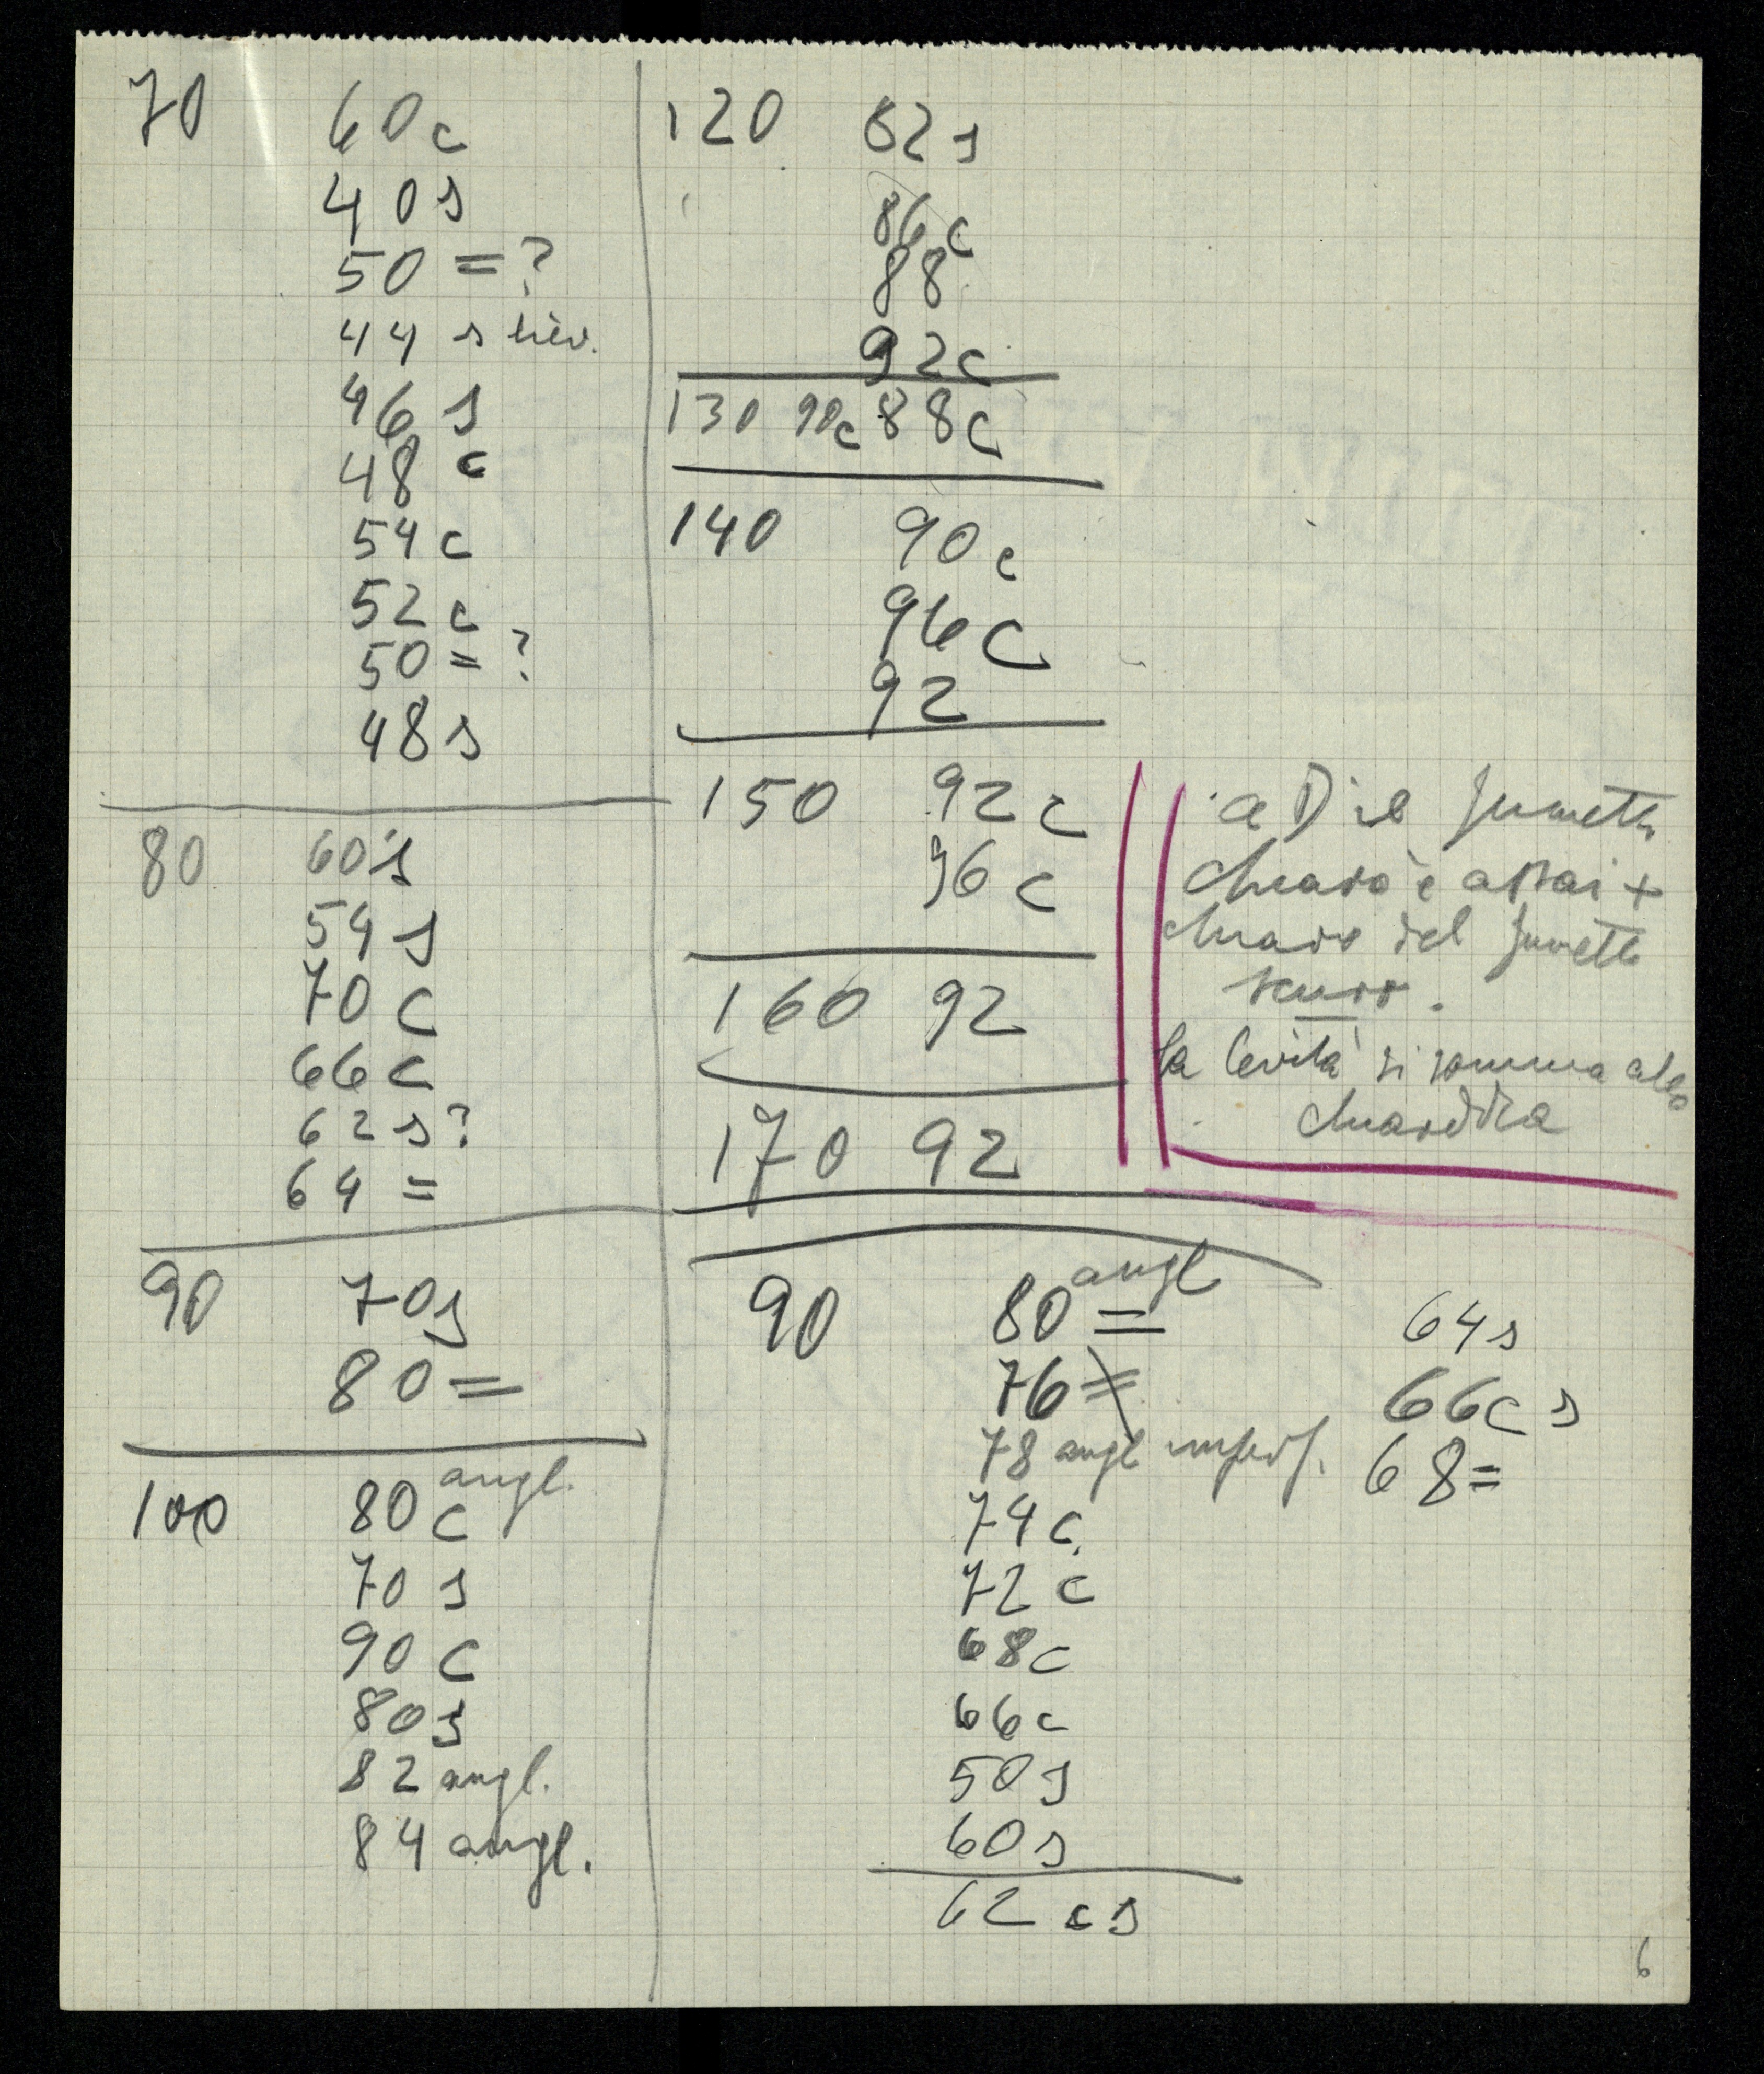 70 60 c
40 s
50 = ?
44 s liev.
46 s
48 c
54 c
52 c
50 = ?
48 s
80 60 s
54 s
70 c
66 c
62 s ?
64 =
90 70 s
80 =
100 80 c angl.
70 s
90 c
80 s
82 angl.
84 angl.
120 82 s
86 c
88
92 c
130 90c 88 c
140 90 c
96 c
92
150 92 c
96 c
160 92
170 92
a D il fumetto
chiaro è assai +
chiaro del fumetto
scuro.
la levità si somma alla
90 80 = angl
76 =
78 angl imperf.
74 c
72 c
68 c
66 c
50 s
60 s
62 c s
64 s
66 c s
68 =
6